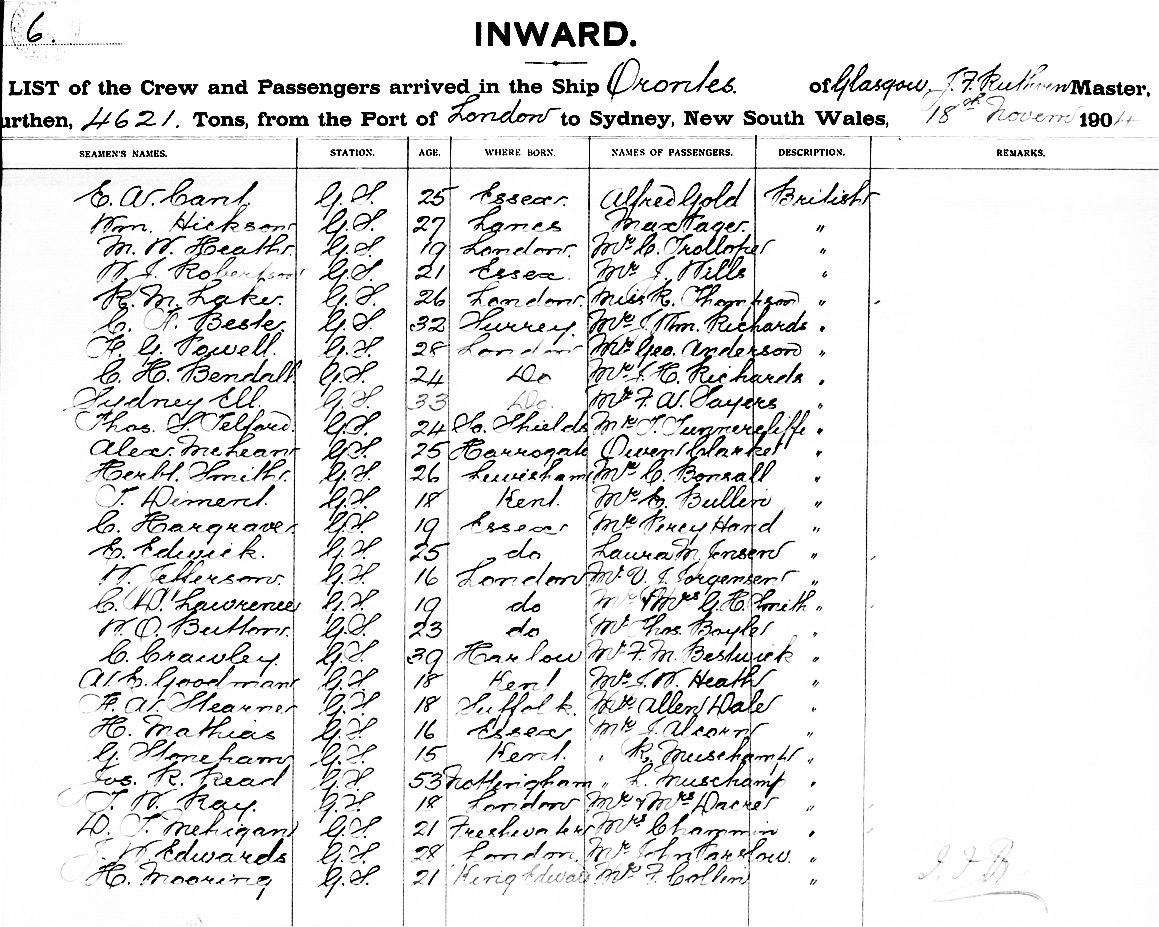 6.
INWARD.
LIST of the Crew and Passengers arrived in the Ship Orontes. of Glasgow, J. F. Ruthven Master,
urthen, 4621. Tons, from the Port of London to Sydney, New South Wales, 18th Novem 1904
SEAMEN'S NAMES. STATION. AGE. WHERE BORN. NAMES OF PASSENGERS. DESCRIPTION. REMARKS.
E. A. Cant. G.S. 25 Essex. Alfred Gold British
Wm. Hickson G.S. 27 Lancs Max Tager. "
M. W. Heath. G.S. 19 London. Mr. C. Trollope "
W. J. Robertson G.S. 21 Essex. Mr. J. Wills "
R. M. Lake. G.S. 26 London. Miss K. Thompson "
C. F. Beste. G.S. 32 Surrey. Mr. J. Wm. Richards "
F. G. Powell. G.S. 28 London Mr. Geo. Anderson "
C. H. Bendall G.S. 24 Do Mr. J. H. Richards "
Sydney Ell. G.S. 33 Do. Mr. F. W. Sayers "
Thos. S. Telford. G.S. 24 So. Shields Mr. T. Tunnercliffe "
Alex. McLean G.S. 25 Harrogate Owen Clarke "
Herbt. Smith. G.S. 26 Lewisham Mr. C. Bonsall "
T. Diment. G.S. 18 Kent. Mr. E. Bullin "
C. Hargrave. G.S. 19 Essex Mr. Percy Hand "
E. Edwick. G.S. 25 do Laura M. Jensen "
W. Jefferson. G.S. 16 London Mr. V. J. Jorgensen "
C. D. Lawrence G.S. 19 do Mr. & Mrs. G. H. Smith "
W. O. Button. G.S. 23 do Mr. Thos. Boyle "
C. Crawley G.S. 39 Harlow Mr. F. M. Bestwick "
A. E. Goodman G.S. 18 Kent Mr. J. W. Heath "
F. A. Stearne G.S. 18 Suffolk. Mr. Allen Dale "
H. Mathias G.S. 16 Essex Mr. J. Alcorn "
G. Stoneham G.S. 15 Kent. " R. Muschamp "
Jos. R. Read G.S. 53 Nottingham " L. Muschamp "
T. W. Kay. G.S. 18 London Mr. & Mrs. Dacre "
D. J. Mehigan G.S. 21 Freshwater Mrs. Chammin "
J. W. Edwards G.S. 28 London. Mr. John Parslow. "
H. Mooring G.S. 21 King Edward Mr. F. Collin "